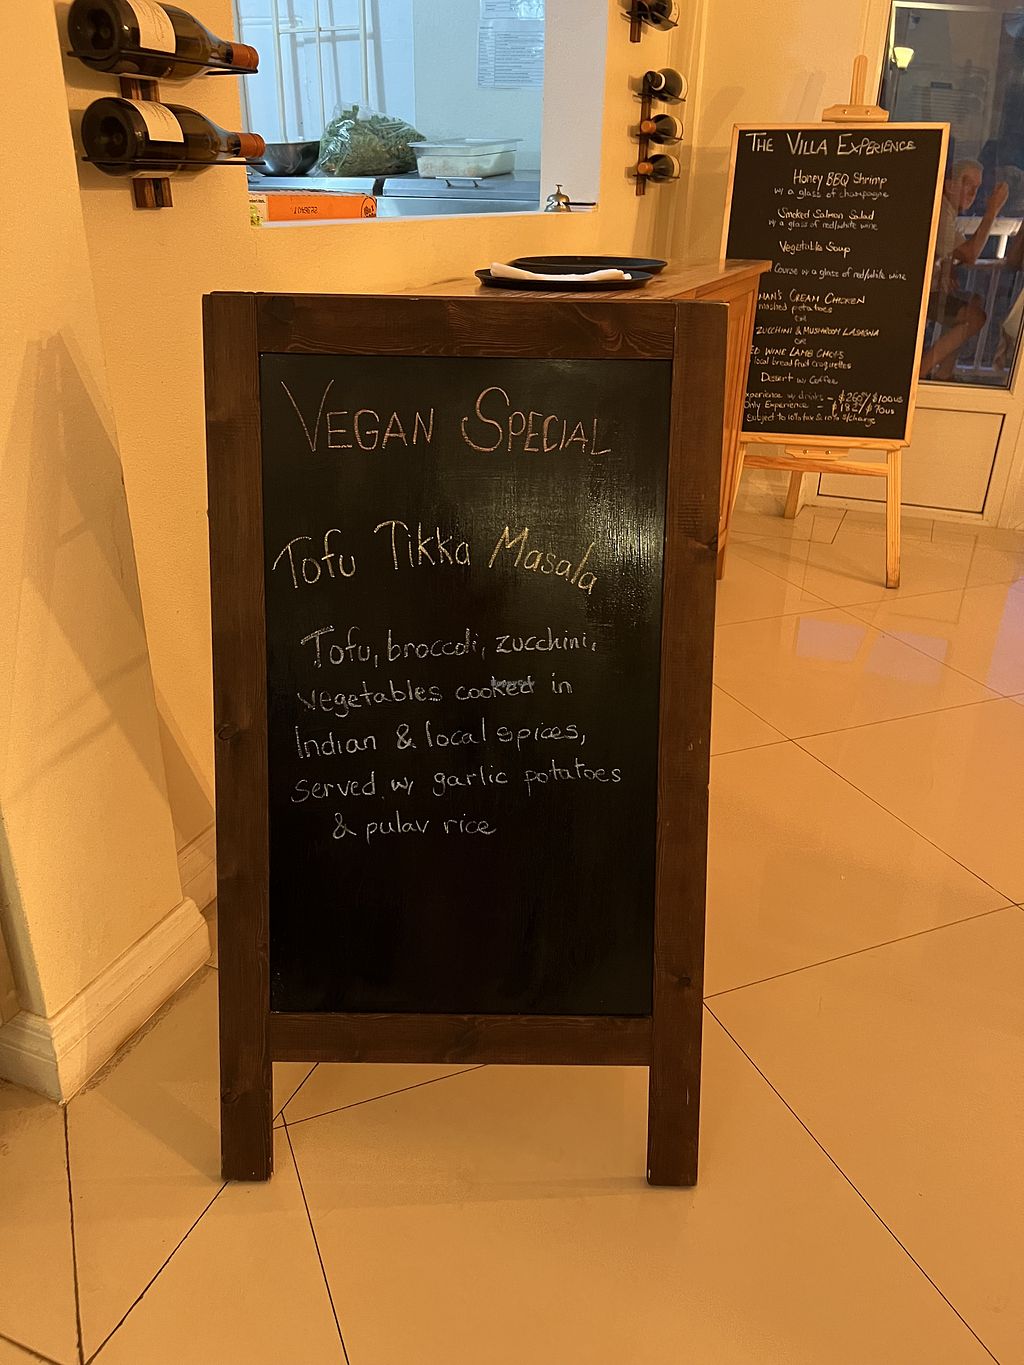 VEGAN SPECIAL
Tofu Tikka Masala
Tofu, broccoli, zucchini,
vegetables cooked in
Indian & local spices,
served w/ garlic potatoes
& pulav rice
THE VILLA EXPERIENCE
Honey BBQ Shrimp
w/ a glass of champagne
Smoked Salmon Salad
w/ a glass of red/white wine
Vegetable Soup
Course w/ a glass of red/white wine
CREAM CHICKEN
mashed potatoes
OR
ZUCCHINI & MUSHROOM LASAGNA
OR
WINE LAMB CHOPS
local breadfruit croquettes
Dessert w/ Coffee
w/ drinks - /$100US
Only Experience - /$70US
Subject to 10% tax & 10% s/charge